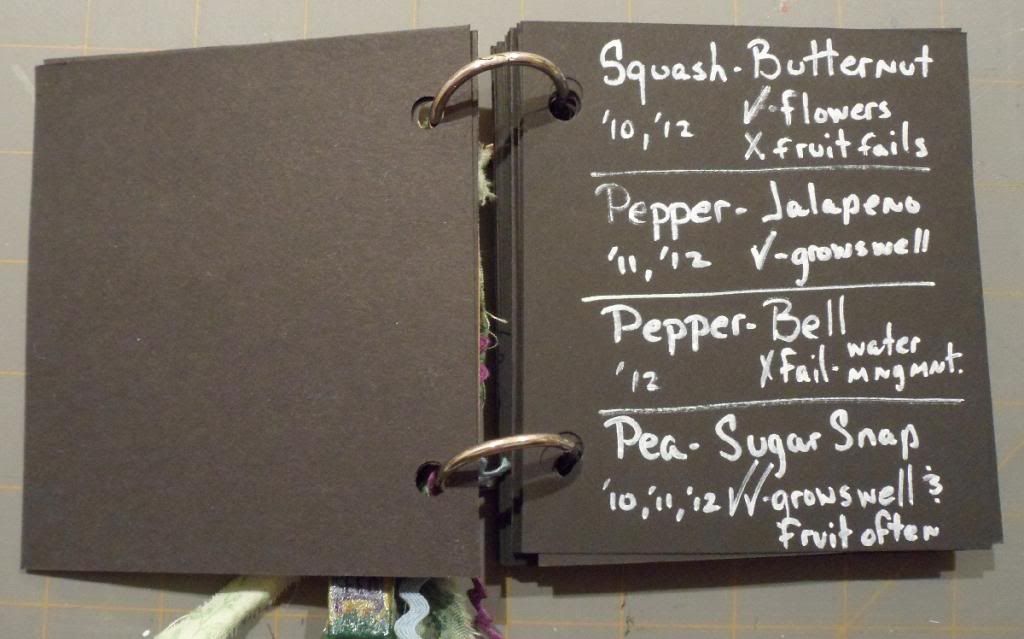 Squash - Butternut
'10, '12 ✓-flowers
X fruit fails
Pepper - Jalapeno
'11, '12 ✓-grows well
Pepper - Bell
'12 X fail - water mngmnt.
Pea - Sugar Snap
'10, '11, '12 ✓✓-grows well &
fruit often